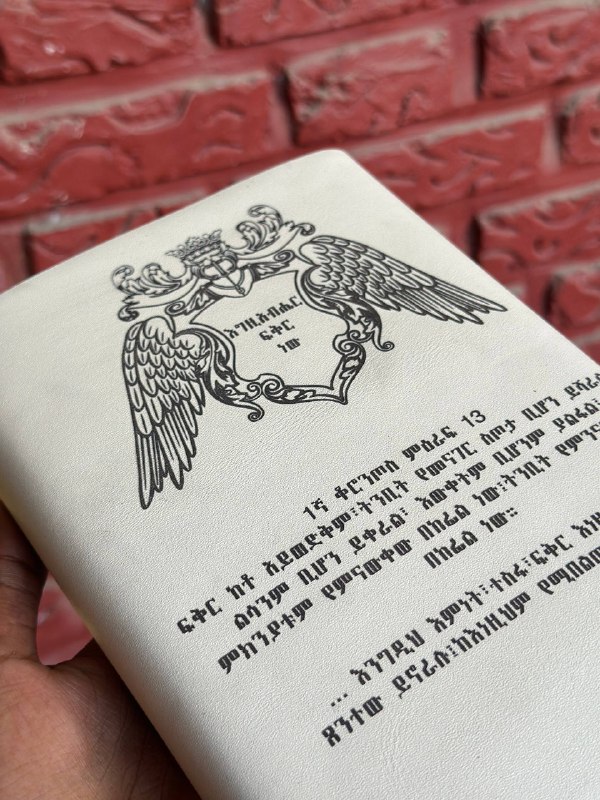 እግዚአብሔር
ፍቅር
ነው
1ኛ ቆሮንቶስ ምዕራፍ 13
ፍቅር ከቶ አይወድቅም፤ትንቢት የመናገር ስጦታ ቢሆን ይሻራል
ልሳንም ቢሆን ይቀራል፤ እውቀትም ቢሆንም ያልፋል፤
ምክንያቱም የምናውቀው በከፊል ነው፤ትንቢት የምንና
በከፊል ነው።
... እንግዲህ እምነት፤ተስፋ፤ፍቅር እነዚ
ጸንተው ይኖራሉ፤ከእነዚህም የሚበልጠ